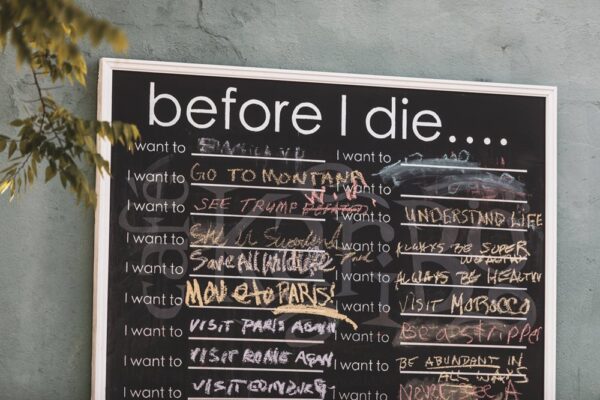 before I die....
I want to
I want to GO TO MONTANA
I want to SEE TRUMP
I want to
I want to Save All Wildlife
I want to MOVE to PARIS!
I want to VISIT PARIS AGAIN
I want to VISIT ROME AGAIN
I want to VISIT
I want to
I want to
I want to UNDERSTAND LIFE
I want to ALWAYS BE SUPER WEALTHY
I want to ALWAYS BE HEALTHY
I want to VISIT MOROCCO
I want to Be a stripper
I want to BE ABUNDANT IN
ALL WAYS
I want to Never See A